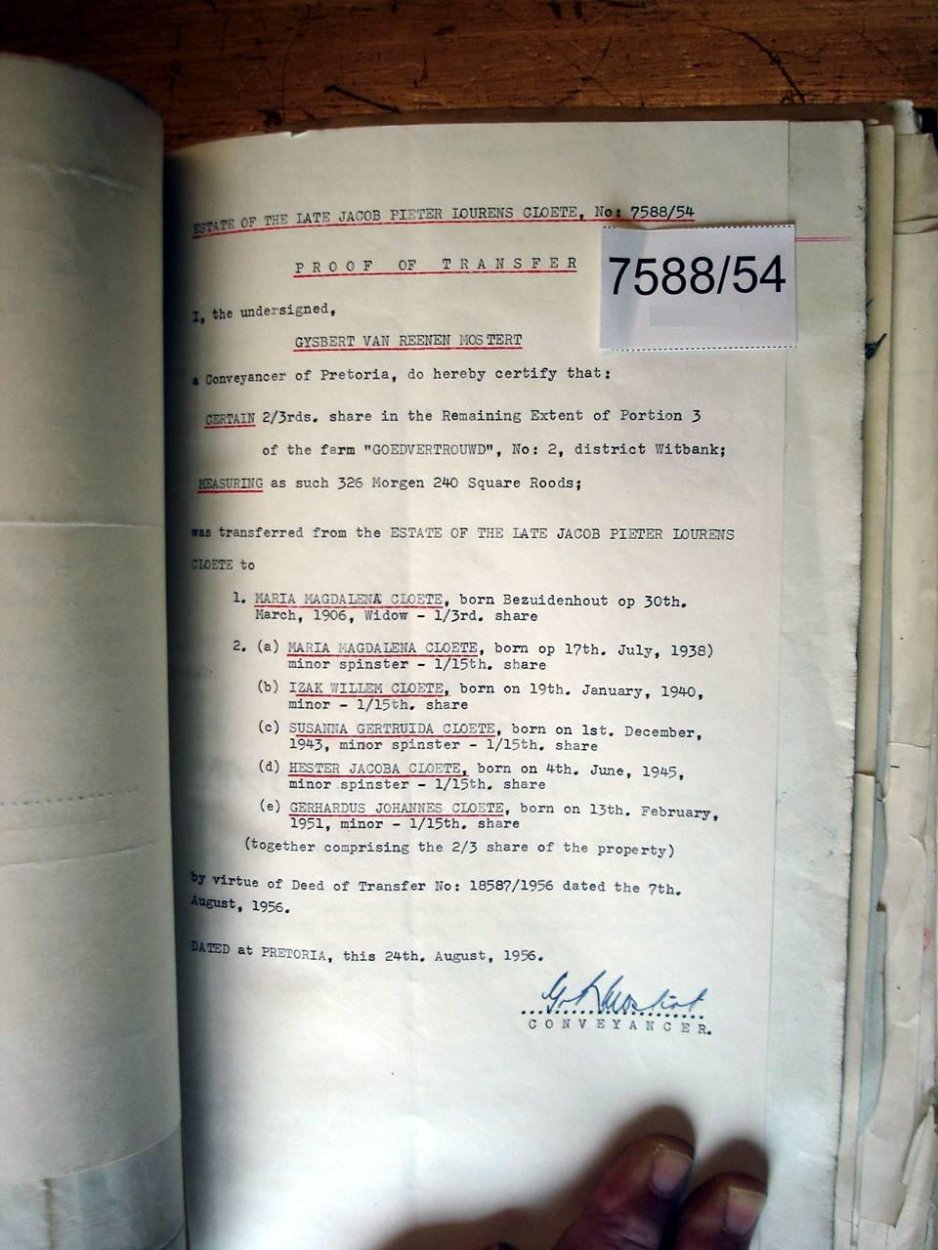 ESTATE OF THE LATE JACOB PIETER LOURENS CLOETE, No: 7588/54
7588/54
PROOF OF TRANSFER
I, the undersigned,
GYSBERT VAN REENEN MOSTERT
a Conveyancer of Pretoria, do hereby certify that:
CERTAIN 2/3rds. share in the Remaining Extent of Portion 3
of the farm "GOEDVERTROUWD", No: 2, district Witbank;
MEASURING as such 326 Morgen 240 Square Roods;
was transferred from the ESTATE OF THE LATE JACOB PIETER LOURENS
CLOETE to
1. MARIA MAGDALENA CLOETE, born Bezuidenhout op 30th.
March, 1906, Widow - 1/3rd. share
2. (a) MARIA MAGDALENA CLOETE, born op 17th. July, 1938)
minor spinster - 1/15th. share
(b) IZAK WILLEM CLOETE, born on 19th. January, 1940,
minor - 1/15th. share
(c) SUSANNA GERTRUIDA CLOETE, born on 1st. December,
1943, minor spinster - 1/15th. share
(d) HESTER JACOBA CLOETE, born on 4th. June, 1945,
minor spinster - 1/15th. share
(e) GERHARDUS JOHANNES CLOETE, born on 13th. February,
1951, minor - 1/15th. share
(together comprising the 2/3 share of the property)
by virtue of Deed of Transfer No: 18587/1956 dated the 7th.
August, 1956.
DATED at PRETORIA, this 24th. August, 1956.
CONVEYANCER.